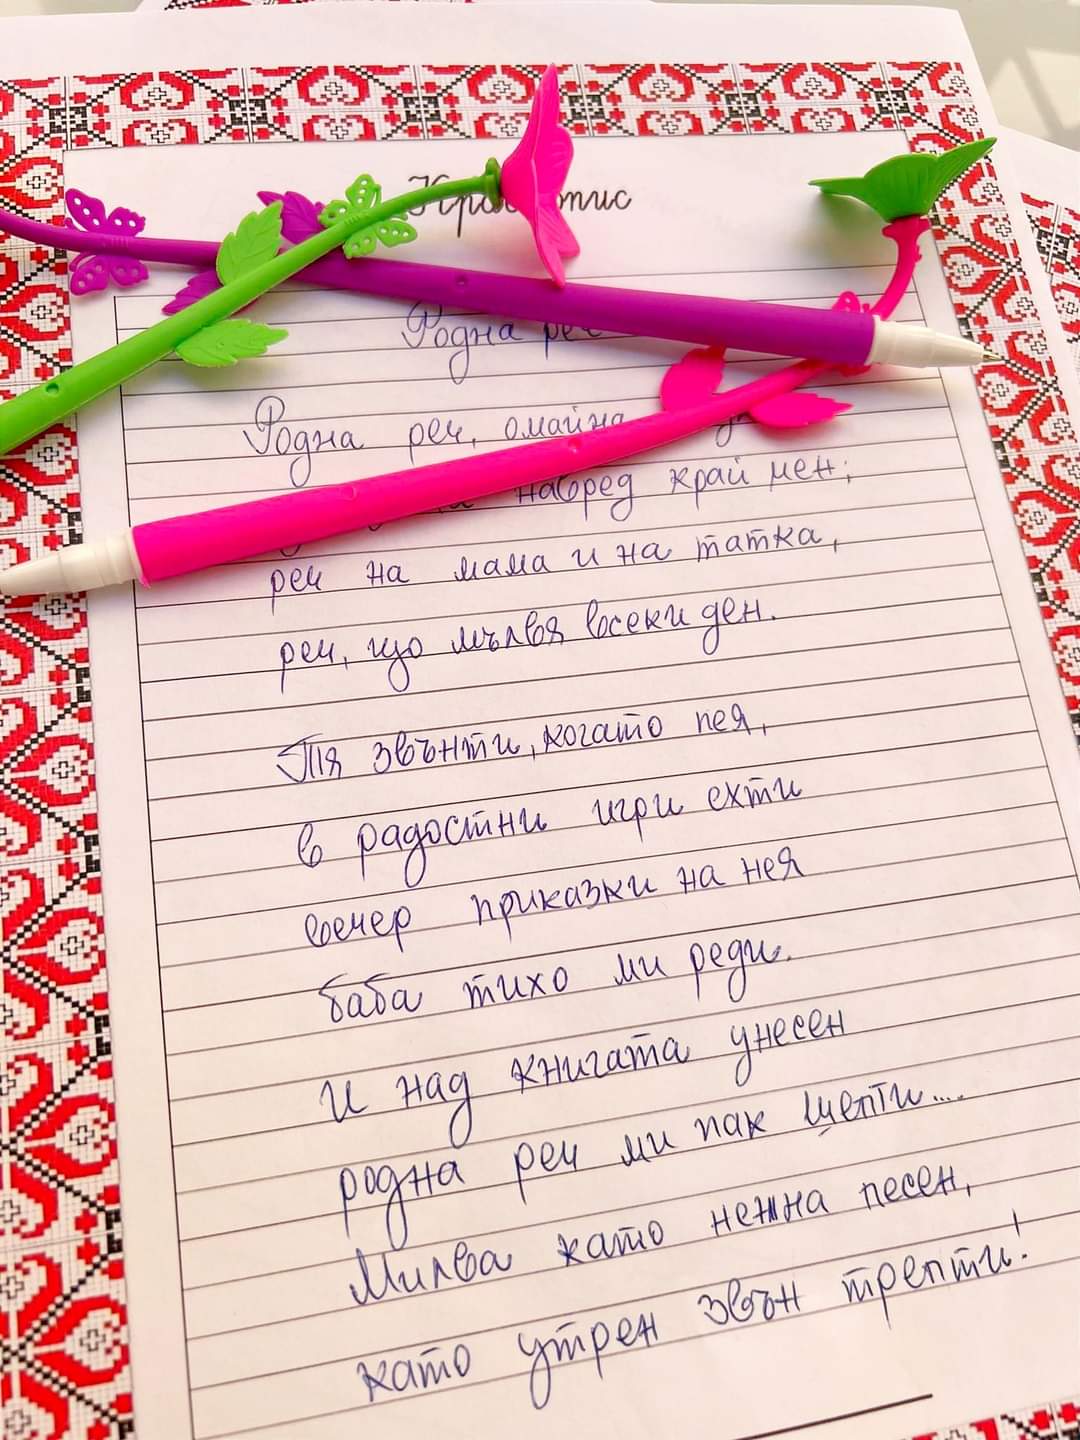 Родна реч
Родна реч, омайна
навред край мен;
реч на мама и на татка,
реч, що мълвя всеки ден.
Тя звънти, когато пея,
в радостни игри ехти
вечер приказки на нея
баба тихо ми реди.
И над книгата унесен
родна реч ми пак шепти....
Милва като нежна песен,
като утрен звън трепти!